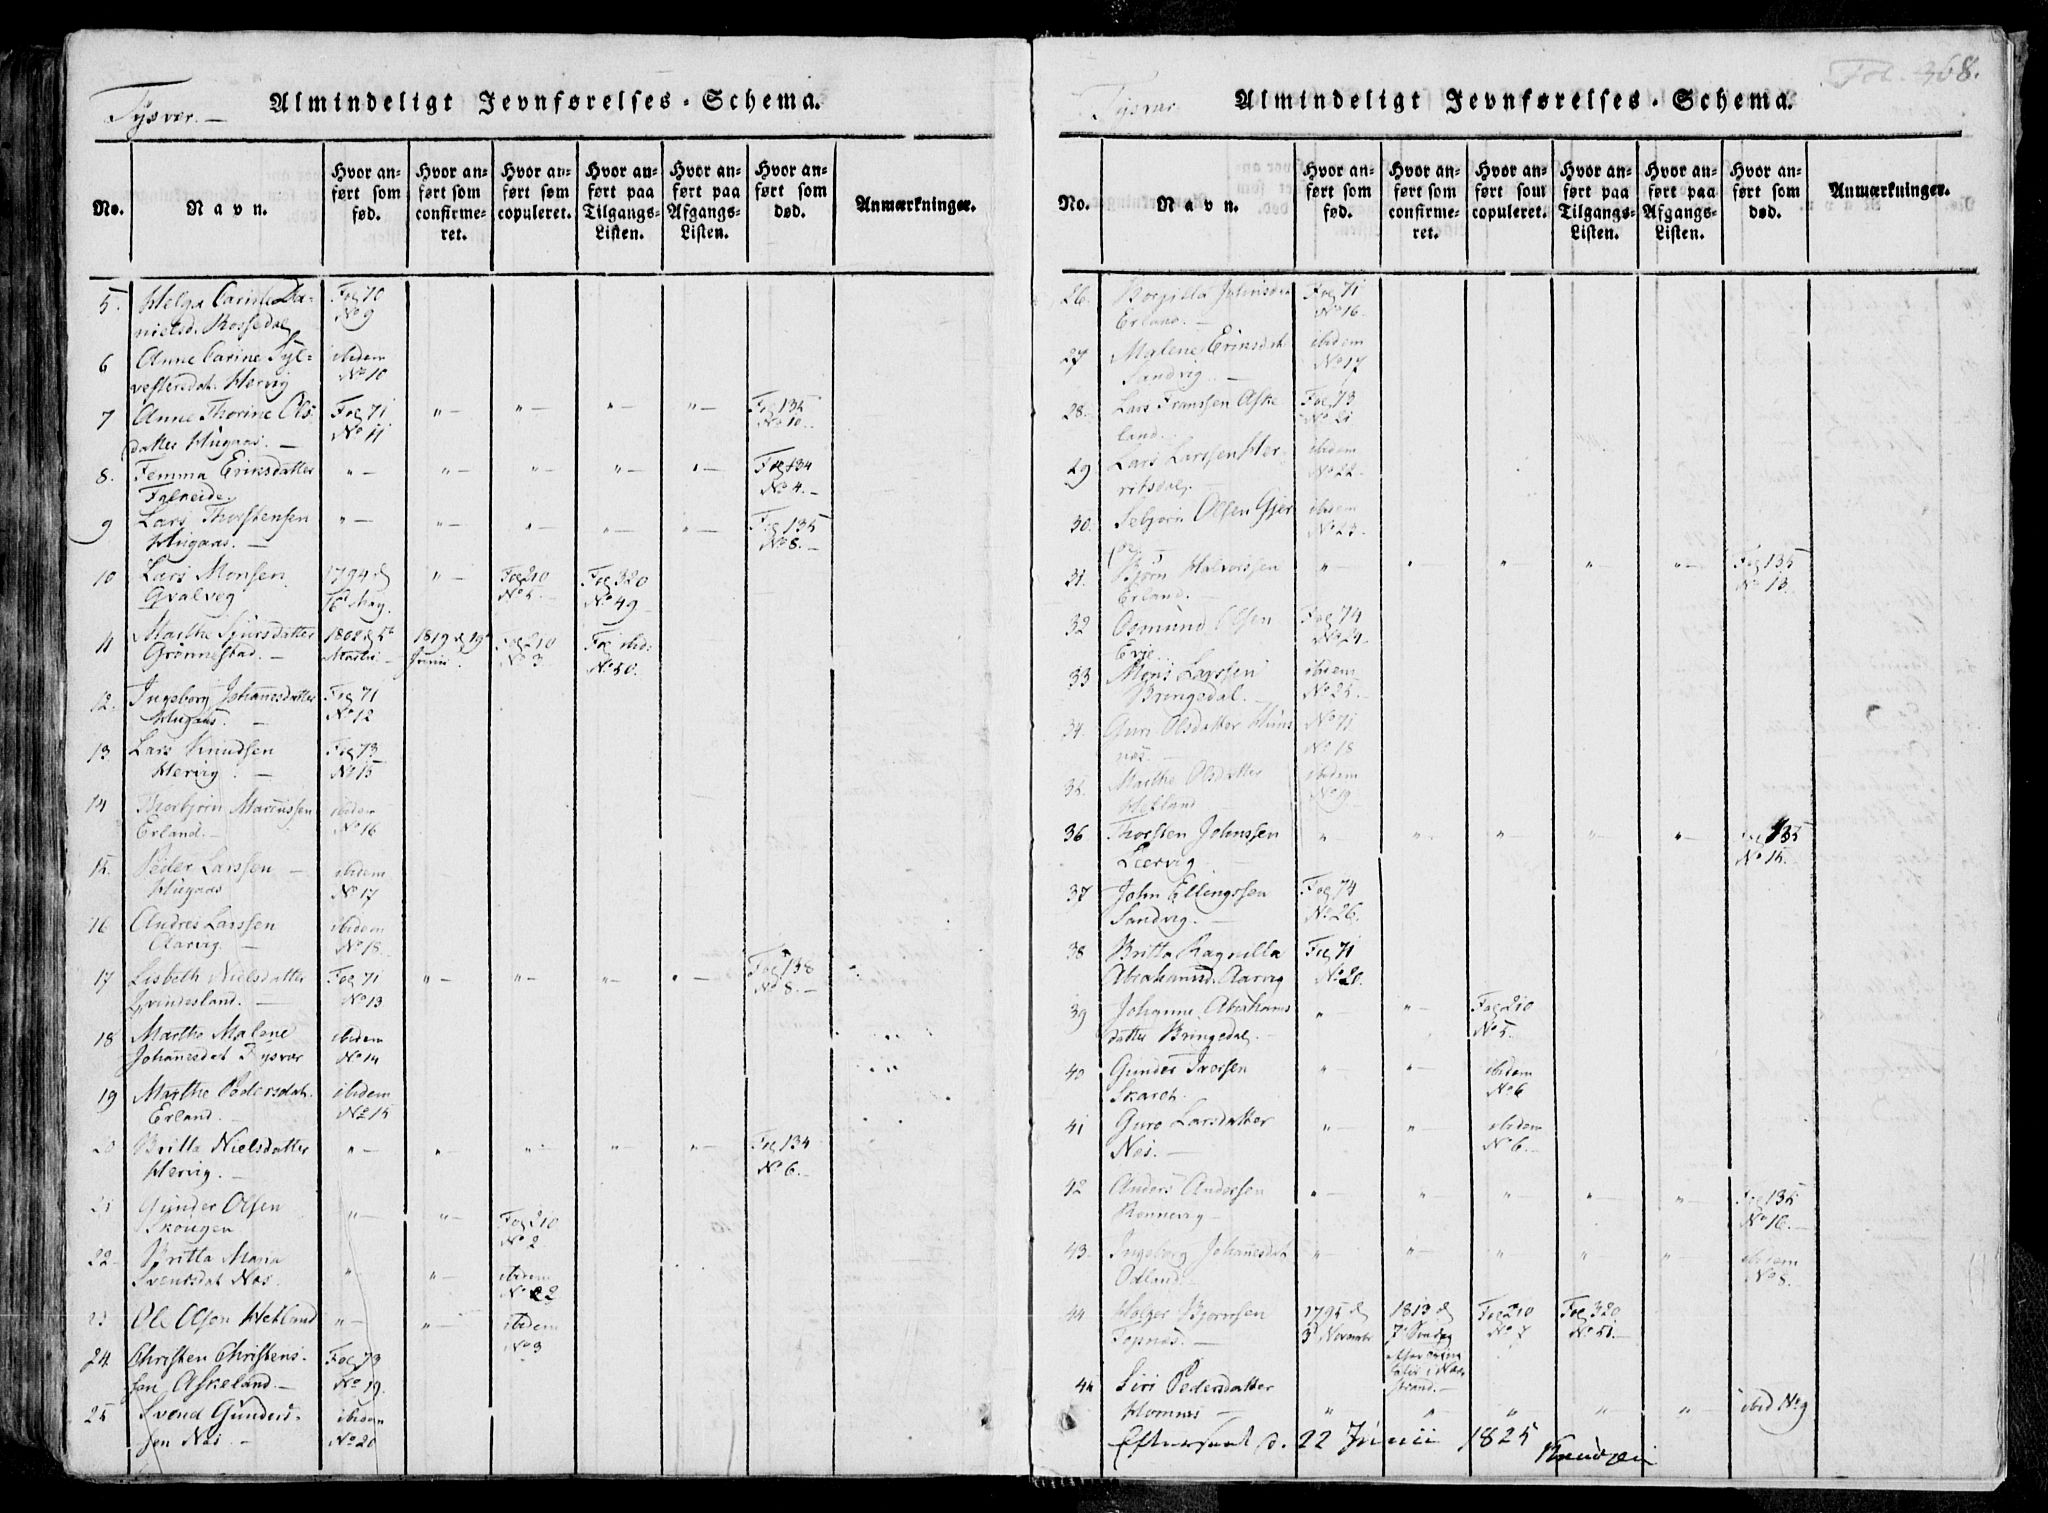 Tysver.
Almindeligt Jevnførelses-Schema.
No. | Navn. | Hvor anført som fød. | Hvor anført som confirmeret. | Hvor anført som copuleret. | Hvor anført paa Tilgangs-Listen. | Hvor anført paa Afgangs-Listen. | Hvor anført som død. | Anmærkninger.
5. Helga Carine Da- Fol 70
nielsd. Rossedal No 9
6 Anne Carine Syl- ibidem
vestersdat. Hervig No 10
7 Anne Thorine Ols- Fol 71 " — " — " — " — Fol 135
datter Hugaas. — No 11 No 10.
8. Femma Eriksdatter " — " — " — " — " — Fol 134
Falkeide. No 4. —
9 Lars Thorstensen " — " — " — " — " — Fol 135
Hugaas. — No 8. —
10 Lars Monsen 1794 d " — Fol 210 Fol 320
Qvalvog 16 May. No 49
11 Marthe Sjursdatter 1802 d 5t 1819 d 19 Fol 210 Fol ibid:
Grønnestad. — Martii — Junii. No 3. No 50.
12. Ingeborg Johannesdatter Fol 71
Hugaas. — No 12
13 Lars Knudsen Fol 73
Hervig. — No 15
14 Thorbjørn Marcussen ibidem
Erland. — No 16
15. Peder Larssen — ibidem
Hugaas No 17
16 Andres Larssen ibidem
Aarvig. — No 18.
17 Lisbeth Nielsdatter Fol 71 " — " — " — " — Fol 138
Qvindesland. — No 13 No 8. —
18 Marthe Malene ibidem
Johannesdat Tysvær No 14
19 Marthe Pedersdat. ibidem
Erland. — No 15
20 Britta Nielsdatter " — " — " — " — " — Fol 134
Hervig. — No 6. —
21 Gunder Olsen " — " — Fol 210
Skougen No 2
22. Britta Maria " " — ibidem
Svendsdat Nas. No 2
23 Ole Olsen Hetland " — " — ibidem
No 3
24 Christen Christens- Fol 73
sen Askeland. — No 19.
25 Svend Gunders- ibidem
sen Nas. — No 20
Fol. 368.
Tysvær
Almindeligt Jevnførelses-Schema.
No. | Navn. | Hvor anført som fød. | Hvor anført som confirmeret. | Hvor anført som copuleret. | Hvor anført paa Tilgangs-Listen. | Hvor anført paa Afgangs-Listen. | Hvor anført som død. | Anmærkninger.
26. Borgilla Johnsdat Fol 71
Erland. — No 16.
27 Malene Eriksdat ibidem
Sandvig. — No 17
28. Lars Franssen Aske Fol 73
land. No 21
29 Lars Larssen Her- ibidem
ritsdal. No 22.
30. Sebjørn Olsen Gjer ibidem
No 23.
31. Bjørn Halvorssen " — " — " — " — " — Fol 135
Erland. — No 13.
32 Osmund Olsen Fol 74
Evie. No 24.
33 Mons Larssen ibidem
Bringedal. — No 25. —
34. Guri Olsdatter Huns No 71
nas. — No 18
35. Marthe Olsdatter ibidem
Hetland No 19.
36 Thorsten Johnssen " " — " — " — " — Fol 135
Leervig. — No 15. —
37 John Ellingssen Fol 74
Sandvig. — No 26.
38 Britta Ragnilla Fol 71
Abrahamsd. Aarvig No 20.
39 Johanne Abrahams " — " — Fol 210
datter Bringedal. — No 5. —
40 Gunder Iversen " — " — ibidem
Skaret. No 6
41 Guro Larsdatter " — " — ibidem
Nas. — No 6. —
42 Anders Andersen " — " — " — " — " — Fol 135
Rennevig — No 16. —
43. Ingeborg Johannesdat " — " — " — " — " — ibidem
Odland. — No 8. —
44 Holger Bjørnsen 1795 d 1813 d Fol 210 Fol 320
Topnas. — 3 November 7 Søndag No 7 No 51. —
strand. —
45 Siri Pedersdatter
Homnes — " " — " " — " — ibid No 9
Efterseet d. 22 Junii 1825
Knudsen